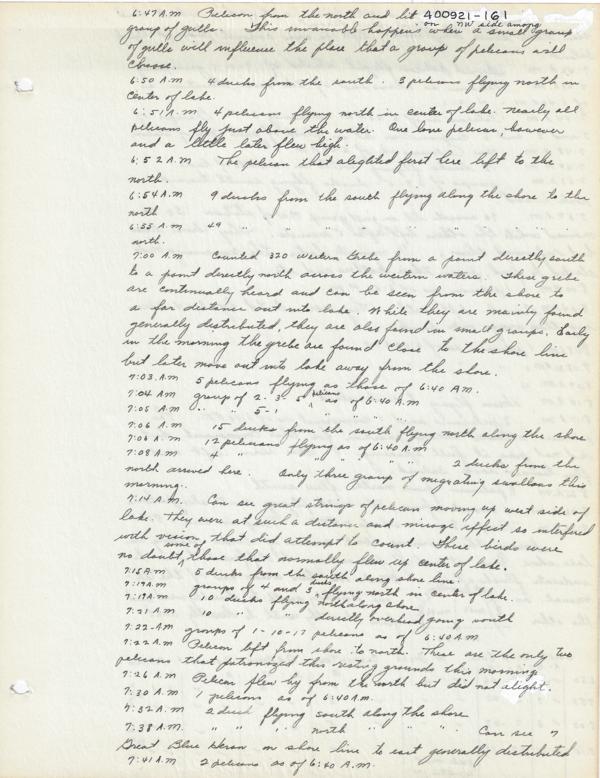 400921-161
6:47 A.M Pelican from the north and lit on NW side among
group of gulls. This invariable happens when a small group
of gulls will influence the place that a group of pelicans will
choose.
6:50 A.M 4 ducks from the south. 3 pelicans flying north in
center of lake.
6:51 A.M. 4 pelicans flying north in center of lake. Nearly all
pelicans fly just above the water. One lone pelican, however
and a little later flew high.
6:52 A.M The pelican that alighted first here left to the
north.
6:54 A.M 9 ducks from the south flying along the shore to the
north
6:55 A.M 49 " " " " " "
north.
7:00 A.M Counted 320 Western Grebe from a point directly south
to a point directly north across the western waters. These grebe
are continually heard and can be seen from the shore to
a far distance out into lake. While they are mainly found
generally distributed, they are also found in small groups. Early
in the morning the grebe are found close to the shore line
but later move out into lake away from the shore.
7:03 A.M 5 pelicans flying as those of 6:40 AM.
7:04 AM group of 2-3-5 pelicans as of 6:40 A.M
7:05 A.M " " 5-1 " " "
7:06 A.M 15 ducks from the south flying north along the shore
7:06 A.M 12 pelicans flying as of 6:40 A.M
7:08 A.M 4 " " " " " 2 ducks from the
north arrived here. Only three group of migrating swallows this
morning.
7:14 A.M. Can see great strings of pelican moving up west side of
lake. They were at such a distance and mirage effect so interfered
with vision, that did attempt to count. These birds were
no doubt, some of those that normally flew up center of lake.
7:15 A.M 5 ducks from the south along shore line.
7:17 A.M groups of 4 and 3 ducks flying north in center of lake.
7:19 A.M 10 ducks flying north along shore
7:21 A.M 10 " " directly overhead going south
7:22 AM groups of 1-10-17 pelicans as of 6:40 A.M
7:22 A.M Pelican left from shore to north. These are the only two
pelicans that patronized this resting grounds this morning
7:26 A.M Pelican flew by from the north but did not alight.
7:30 A.M 1 pelicans as of 6:40 A.M.
7:32 A.M 2 duck flying south along the shore
7:38 A.M. " " " north " " " Can see 7
Great Blue Heron on shore line to east generally distributed
7:41 A.M 2 pelicans as of 6:40 A.M.